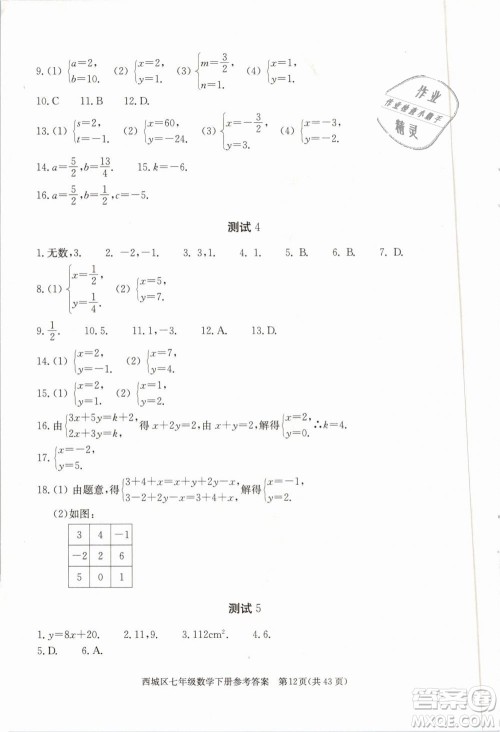 9.(1) {a=2, b=10. (2) {x=2, y=2. (3) {m=3/2, n=1. (4) {x=-3/2, y=-3/2.
10.C 11.B 12.D
13.(1) {s=2, t=-1. (2) {x=60, y=-24. (3) {x=2, y=-3. (4) {x=2, y=1.
14.a=5/2,b=13/4. 15.x=2,k=6.
16.a=5/2,b=1/2,c=-5.
测试4
1.无数,3. 2.-2,-1. 3.3,1. 4.1. 5.B. 6.B. 7.D.
8.(1) {x=1/2, y=1/4. (2) {x=5, y=7.
9.1/2. 10.5. 11.1,-3. 12.A. 13.D.
14.(1) {x=2, y=-1. (2) {x=7, y=4.
15.(1) {x=2, y=1. (2) {x=1, y=2.
16.由{3x+5y=k+2, 2x+3y=k. 得x+2y=2,由x+y=2,解得{x=2, y=0. ∴k=4.
17.{y=-2, y=5.
18.(1)由题意,得{3+4+x=x+y+2y, 3-2+2y-x=3+4+x. 解得{x=-1, y=2.
(2)如图:
3 4 -1
-2 2 6
5 0 1
测试5
1.y=8x+20. 2.11. 3.112cm². 4.6.
5.D. 6.A.
西城区七年级数学下册参考答案 第12页(共43页)
作业
精灵